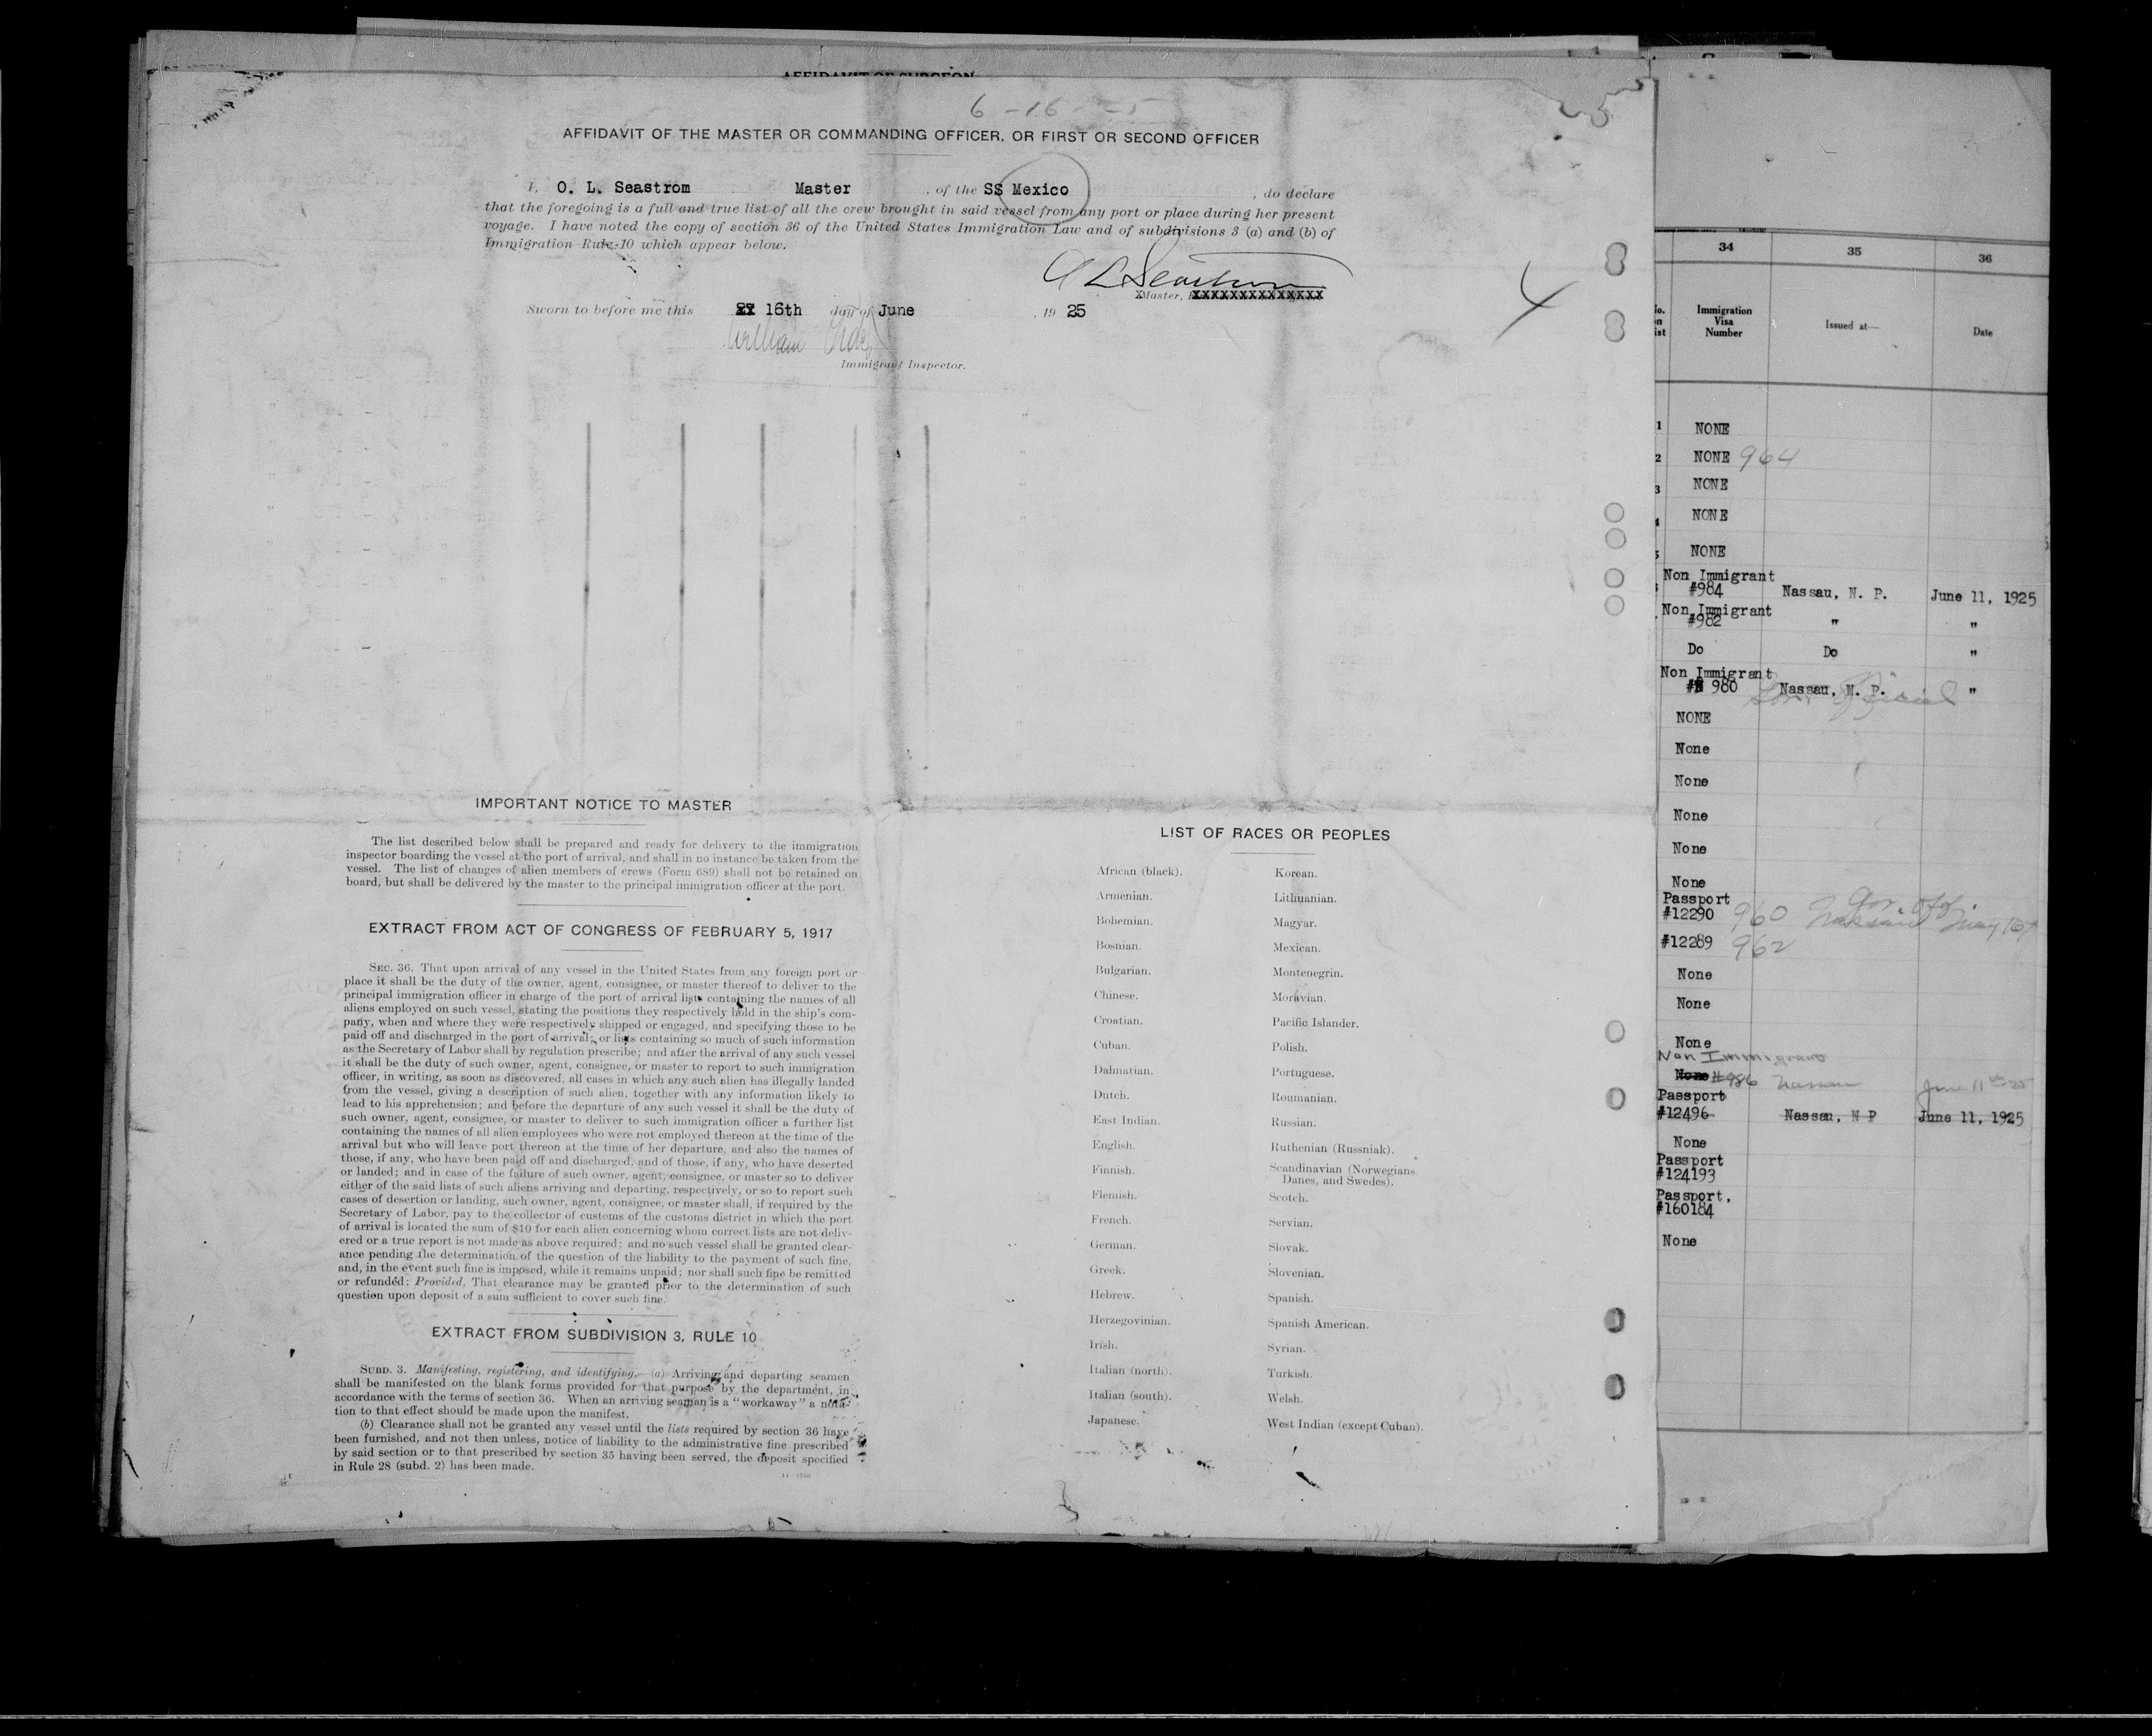 AFFIDAVIT OF SURGEON
6-16- -5
AFFIDAVIT OF THE MASTER OR COMMANDING OFFICER, OR FIRST OR SECOND OFFICER
I, O. L. Seastrom Master , of the SS Mexico , do declare
that the foregoing is a full and true list of all the crew brought in said vessel from any port or place during her present
voyage. I have noted the copy of section 36 of the United States Immigration Law and of subdivisions 3 (a) and (b) of
Immigration Rule 10 which appear below.
O L Seastrom
Master, XXXXXXXXXXXXXX
Sworn to before me this 16th day of June , 19 25
William
Immigrant Inspector.
4
IMPORTANT NOTICE TO MASTER
The list described below shall be prepared and ready for delivery to the immigration
inspector boarding the vessel at the port of arrival, and shall in no instance be taken from the
vessel. The list of changes of alien members of crews (Form 689) shall not be retained on
board, but shall be delivered by the master to the principal immigration officer at the port.
EXTRACT FROM ACT OF CONGRESS OF FEBRUARY 5, 1917
SEC. 36. That upon arrival of any vessel in the United States from any foreign port or
place it shall be the duty of the owner, agent, consignee, or master thereof to deliver to the
principal immigration officer in charge of the port of arrival lists containing the names of all
aliens employed on such vessel, stating the positions they respectively hold in the ship's com-
pany, when and where they were respectively shipped or engaged, and specifying those to be
paid off and discharged in the port of arrival; or lists containing so much of such information
as the Secretary of Labor shall by regulation prescribe; and after the arrival of any such vessel
it shall be the duty of such owner, agent, consignee, or master to report to such immigration
officer, in writing, as soon as discovered, all cases in which any such alien has illegally landed
from the vessel, giving a description of such alien, together with any information likely to
lead to his apprehension; and before the departure of any such vessel it shall be the duty of
such owner, agent, consignee, or master to deliver to such immigration officer a further list
containing the names of all alien employees who were not employed thereon at the time of the
arrival but who will leave port thereon at the time of her departure, and also the names of
those, if any, who have been paid off and discharged, and of those, if any, who have deserted
or landed; and in case of the failure of such owner, agent, consignee, or master so to deliver
either of the said lists of such aliens arriving and departing, respectively, or so to report such
cases of desertion or landing, such owner, agent, consignee, or master shall, if required by the
Secretary of Labor, pay to the collector of customs of the customs district in which the port
of arrival is located the sum of $10 for each alien concerning whom correct lists are not deliv-
ered or a true report is not made as above required; and no such vessel shall be granted clear-
ance pending the determination of the question of the liability to the payment of such fine,
and, in the event such fine is imposed, while it remains unpaid; nor shall such fine be remitted
or refunded: Provided, That clearance may be granted prior to the determination of such
question upon deposit of a sum sufficient to cover such fine.
EXTRACT FROM SUBDIVISION 3, RULE 10
SUBD. 3. Manifesting, registering, and identifying.—(a) Arriving and departing seamen
shall be manifested on the blank forms provided for that purpose by the department, in
accordance with the terms of section 36. When an arriving seaman is a "workaway" a nota-
tion to that effect should be made upon the manifest.
(b) Clearance shall not be granted any vessel until the lists required by section 36 have
been furnished, and not then unless, notice of liability to the administrative fine prescribed
by said section or to that prescribed by section 35 having been served, the deposit specified
in Rule 28 (subd. 2) has been made.
LIST OF RACES OR PEOPLES
African (black).
Armenian.
Bohemian.
Bosnian.
Bulgarian.
Chinese.
Croatian.
Cuban.
Dalmatian.
Dutch.
East Indian.
English.
Finnish.
Flemish.
French.
German.
Greek.
Hebrew.
Herzegovinian.
Irish.
Italian (north).
Italian (south).
Japanese.
Korean.
Lithuanian.
Magyar.
Mexican.
Montenegrin.
Moravian.
Pacific Islander.
Polish.
Portuguese.
Roumanian.
Russian.
Ruthenian (Russniak).
Scandinavian (Norwegians,
Danes, and Swedes).
Scotch.
Servian.
Slovak.
Slovenian.
Spanish.
Spanish American.
Syrian.
Turkish.
Welsh.
West Indian (except Cuban).
34 35 36
Immigration
Visa
Number
Issued at—
Date
1 NONE
2 NONE 964
3 NONE
NONE
NONE
Non Immigrant
#984 Nassau, N. P. June 11, 1925
Non Immigrant
#982 " "
Do Do "
Non Immigrant
# 980 Nassau, N. P. "
NONE
None
None
None
None
None
Passport
#12290 960 Nassau May
#12289 962
None
None
None
Non Immigrant
None #986 Nassau June 11th 25
Passport
#12496 Nassau, N P June 11, 1925
None
Passport
#124193
Passport,
#160184
None